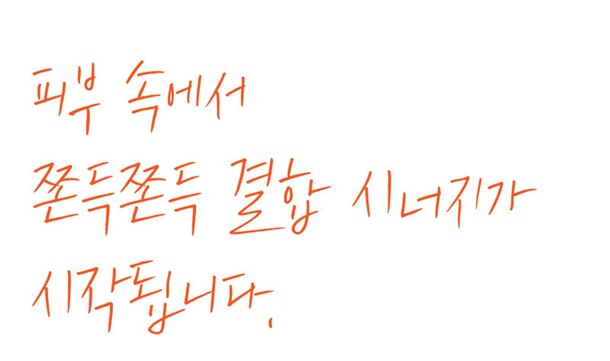 피부 속에서
쫀득쫀득 결합 시너지가
시작됩니다.